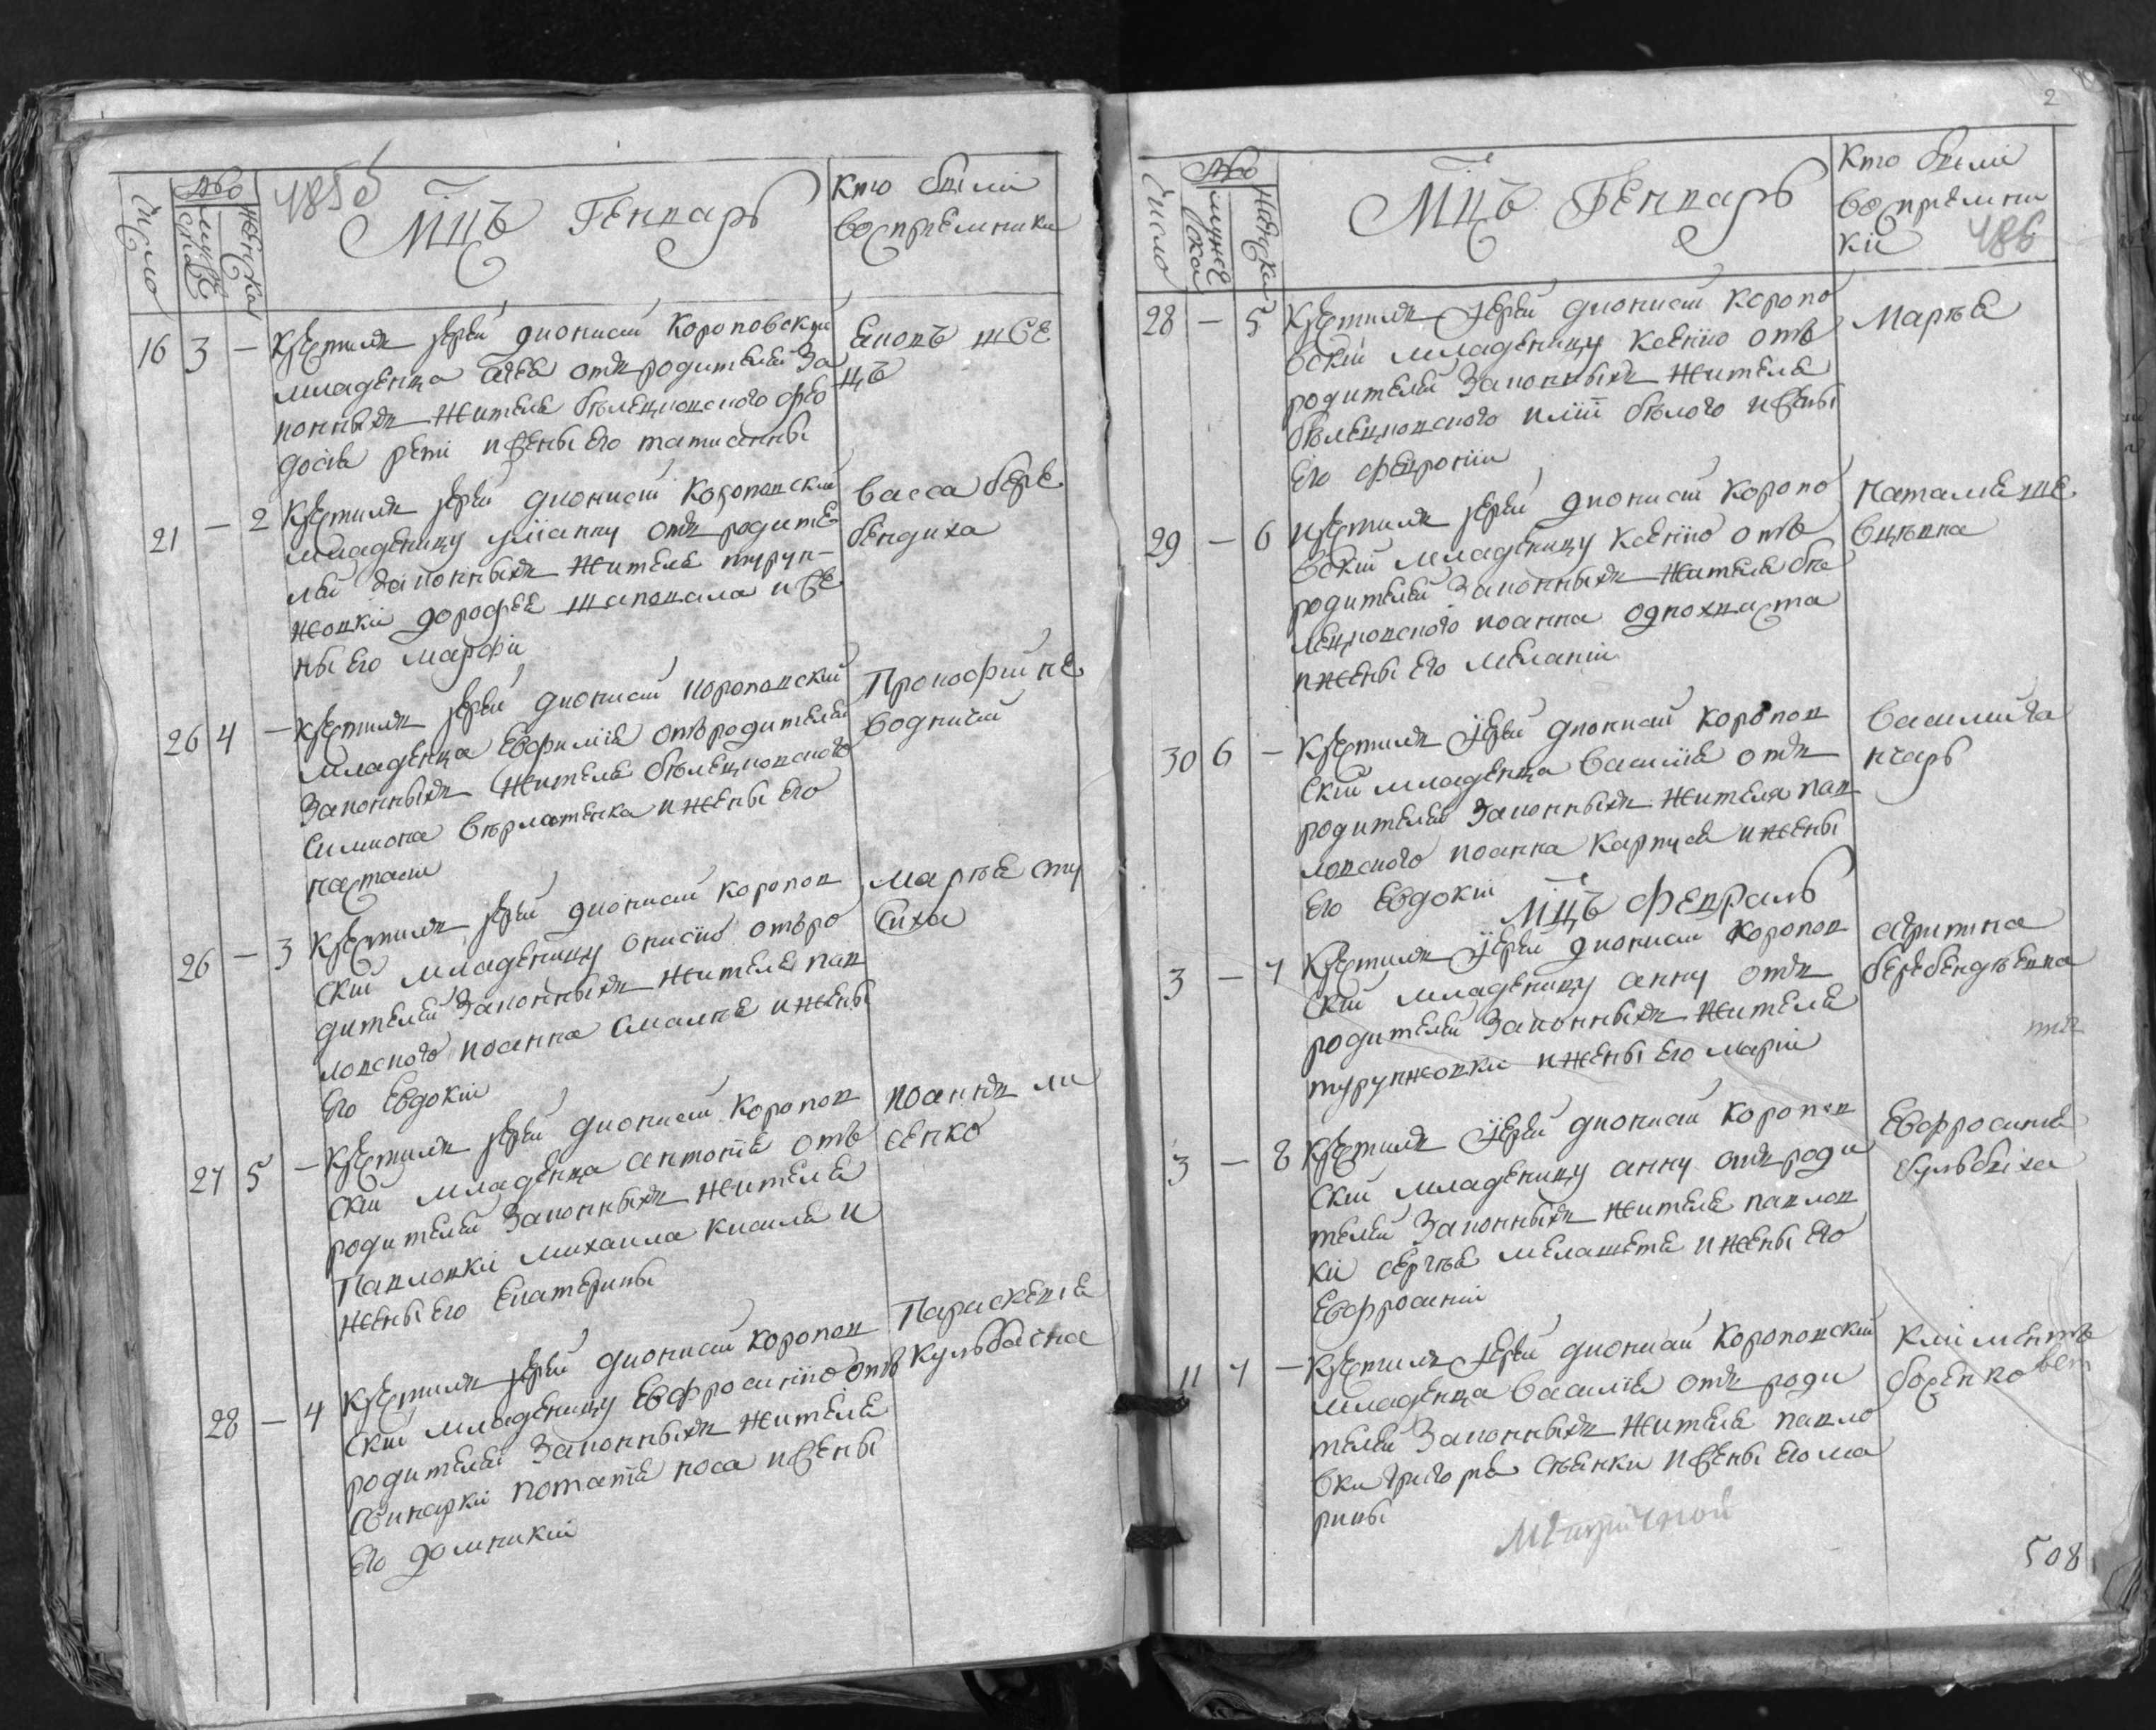 число
№
мужеска
женска
485 об
Мцъ Генварь
кто были
восприемники
16 3 — крестилъ іерей дионисий Короповский
младенца отъ родителей за
конныхъ жителе белецковского фео
досія и жены его татианны
Іяковъ шве
цъ
21 — 2 крестилъ іерей дионисий Короповский
младеницу уліанну отъ родите
лей законныхъ жителе турун-
жовки дорофея шаповала и же
ны его марфи
васса бере
бендиха
26 4 — крестилъ іерей дионисий Короповский
младенца Евфиміе отъ родителей
законныхъ жителе белецковского
Симиона и жены его
настасіи
Прокофий не
водничий
26 — 3 крестилъ іерей дионисий Коропов
ский младеницу онисію отъ ро
дителей законныхъ жителе пав
ловского иоанна и жены
его Евдокіи
Маріе сту
сиха
27 5 — крестилъ іерей дионисий Коропов
ский младенца антоніе отъ
родителей законныхъ жителе
Павловки михаила кисиле и
жены его Екатерины
иоаннъ ли
сенко
28 — 4 крестилъ іерей дионисий Коропов
ский младеницу Евфросинію отъ
родителей законныхъ жителе
Свинарки потапіе носа и жены
его домникіи
Параскевіе
Кульбасна
2
число
№
мужеска
женска
Мцъ Генварь
кто были
восприемни
кіи
486
28 — 5 крестилъ іерей дионисий Коропо
вский младеницу Ксенію отъ
родителей законныхъ жителе
белецковского иліи белого и жены
его февронии
Маріе
29 — 6 крестилъ іерей дионисий Коропо
вский младеницу Ксенію отъ
родителей законныхъ жителе бе
лецковского иоанна
и жены его меланіи
наталіе ше
вцивна
30 6 — крестилъ іерей дионисий Коропов
ский младенца василіе отъ
родителей законныхъ жителя пав
ловского иоанна Карпуся и жены
его Евдокіи
василий го
нчаръ
Мцъ Февраль
3 — 7 крестилъ іерей дионисий Коропов
ский младеницу анну отъ
родителей законныхъ жителе
турунжовки и жены его маріи
агрипина
беребендиевна
3 — 8 крестилъ іерей дионисий Коропов
ский младеницу анну отъ роди
телей законныхъ жителе павлов
ки сергіе и жены его
Евфросиніи
Евфросиніе
11 7 — крестилъ іерей дионисий Короповский
младенца василіе отъ роди
телей законныхъ жителе павло
вки григоріе и жены его ма
рины
климентъ
508